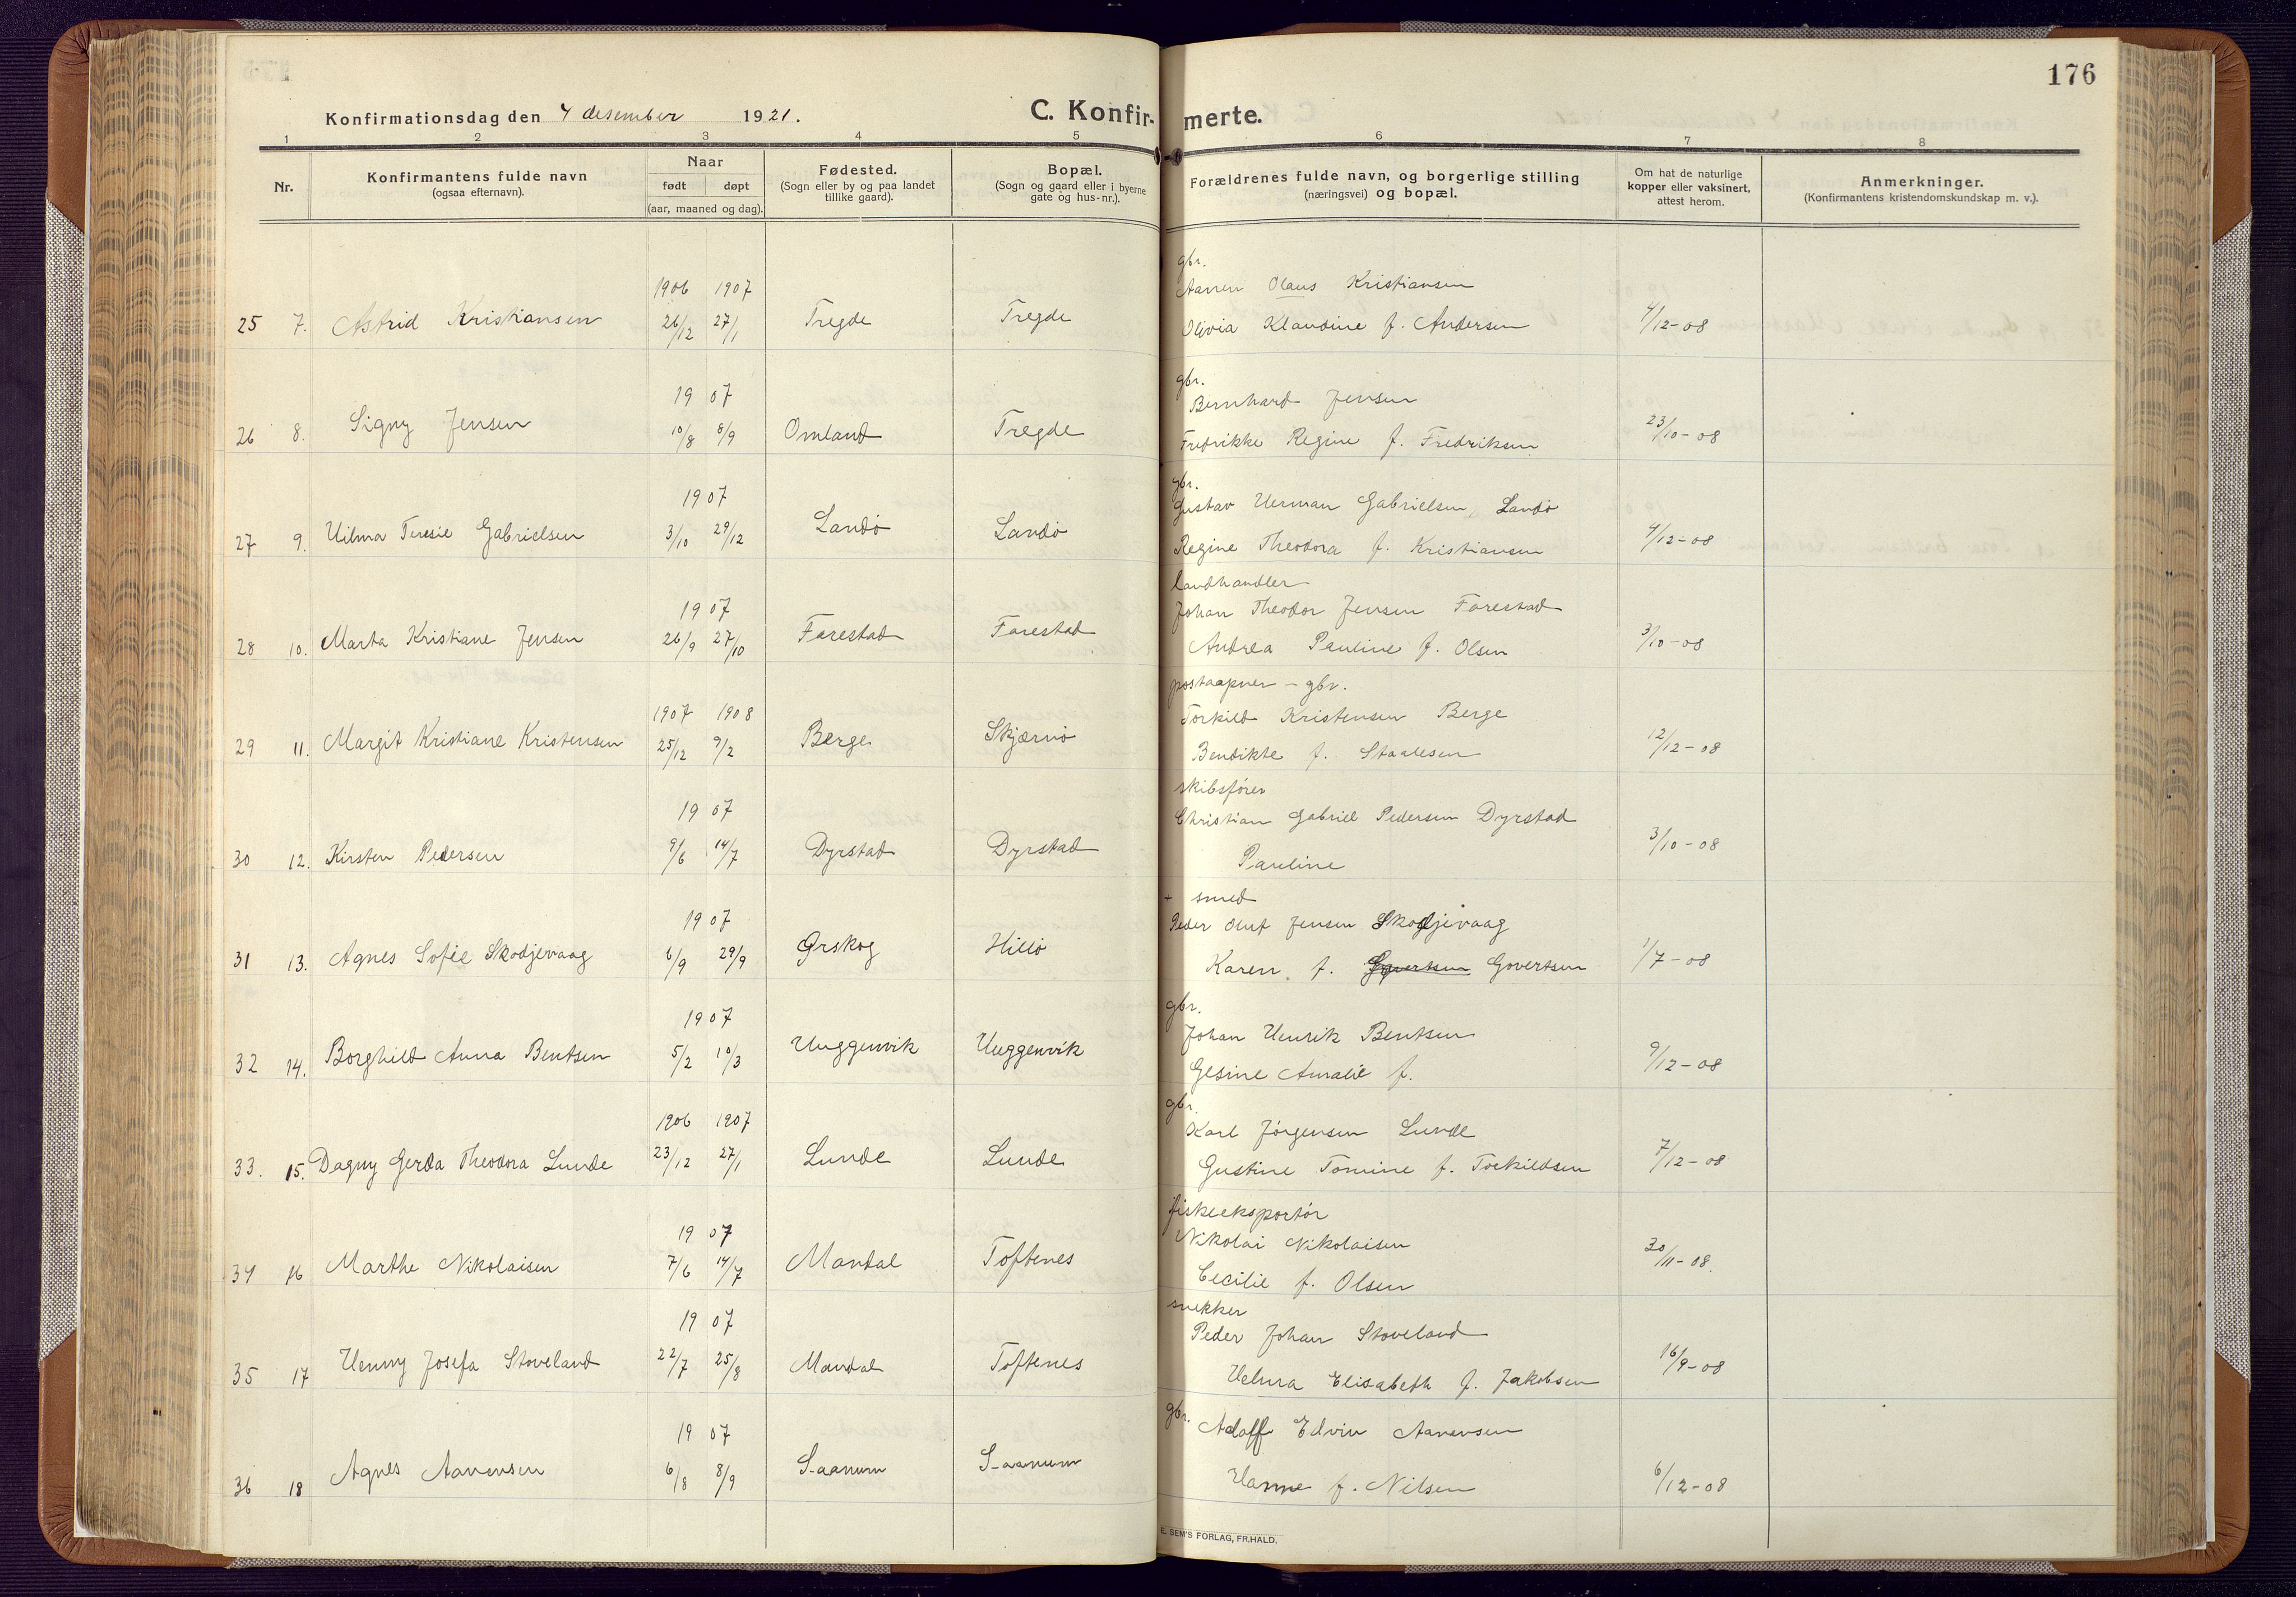 176
Konfirmationsdag den 4 desember 1921.
C. Konfir-merte.
1 2 3 4 5 6 7 8
Nr.
Konfirmantens fulde navn
(ogsaa efternavn).
Naar
født døpt
(aar, maaned og dag).
Fødested.
(Sogn eller by og paa landet
tillike gaard).
Bopæl.
(Sogn og gaard eller i byerne
gate og hus-nr.).
Forældrenes fulde navn, og borgerlige stilling
(næringsvei) og bopæl.
Om hat de naturlige
kopper eller vaksinert,
attest herom.
Anmerkninger.
(Konfirmantens kristendomskundskap m. v.).
gbr.
1906 1907 Aanen Olaus Kristiansen
25 7. Astrid Kristiansen 26/12 27/1 Tregde Tregde Olivia Klaudine f. Andersen 4/12-08
gbr.
1907 Bernhard Jensen
26 8. Signy Jensen 10/8 8/9 Omland Tregde Fredrikke Regine f. Fredriksen 23/10-08
gbr.
1907 Gustav Herman Gabrielsen, Landø
27 9. Hilma Teresie Gabrielsen 3/10 29/12 Landø Landø Regine Theodora f. Kristiansen 4/12-08
landhandler
1907 Johan Theodor Jensen Farestad
28 10. Marta Kristiane Jensen 26/9 27/10 Farestad Farestad Andrea Pauline f. Olsen 3/10-08
postaapner - gbr.
1907 1908 Torkild Kristensen Berge
29 11. Margit Kristiane Kristensen 25/12 9/2 Berge Skjærnø Bendikte f. Staalesen 12/12-08
skibsfører
1907 Christian Gabriel Pedersen Dyrstad
30 12. Kirsten Pedersen 9/6 14/7 Dyrstad Dyrstad Pauline 3/10-08
+ smed
1907 Peder Oluf Jensen Skodjevaag
31 13. Agnes Sofie Skodjevaag 6/9 29/9 Ørskog Hillø Karen f. Govertsen Govertsen 1/7-08
gbr.
1907 Johan Henrik Bentsen
32 14. Borghild Anna Bentsen 5/2 10/3 Uuggenvik Uuggenvik Gesine Amalie f. 9/12-08
gbr.
1906 1907 Karl Jørgensen Lunde
33. 15. Dagny Gerda Theodora Lunde 23/12 27/1 Lunde Lunde Gustine Tomine f. Torkildsen 7/12-08
fiskeeksportør
1907 Nikolai Nikolaisen
34 16 Marthe Nikolaisen 7/6 14/7 Mandal Toftenes Cecilie f. Olsen 30/11-08.
snekker
1907 Peder Johan Stoveland
35 17 Henny Josefa Stoveland 22/7 25/8 Mandal Toftenes Helma Elisabeth f. Jakobsen 16/9-08
gbr.
1907 Adolff Edvin Aanensen
36 18 Agnes Aanensen 6/8 8/9 Saanum Saanum Hanne f. Nilsen 6/12-08
E. SEM'S FORLAG, FR.HALD.